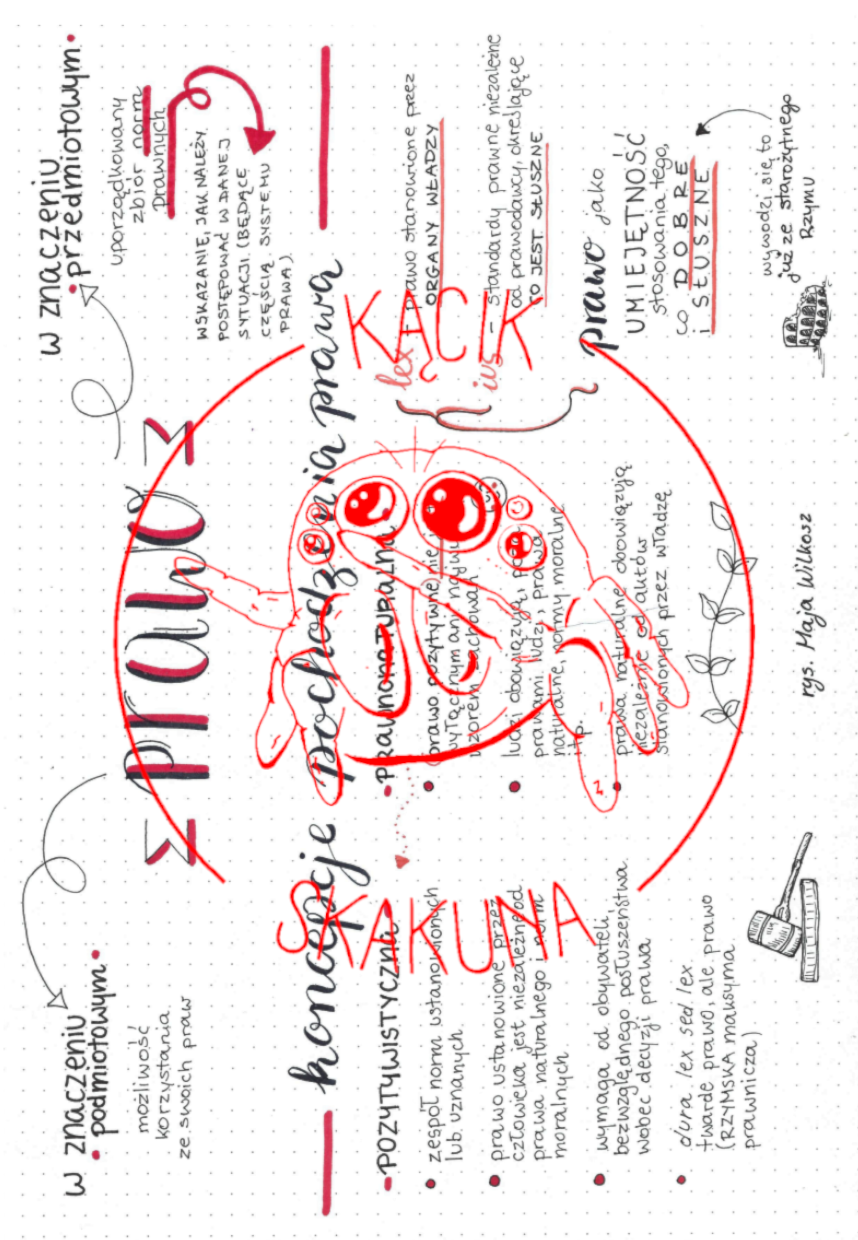 prawo
w znaczeniu
podmiotowym
możliwość
korzystania
ze swoich praw
w znaczeniu
przedmiotowym
uporządkowany
zbiór norm
prawnych
WSKAZANIE, JAK NALEŻY
POSTĘPOWAĆ W DANEJ
SYTUACJI (BĘDĄCE
CZĘŚCIĄ SYSTEMU
PRAWA)
koncepcje pochodzenia prawa
-POZYTYWISTYCZNA-
zespół norm ustanowionych
lub uznanych
prawo ustanowione przez
człowieka jest niezależne od
prawa naturalnego i norm
moralnych
wymaga od obywateli,
bezwzględnego posłuszeństwa
wobec decyzji prawa
dura lex sed lex
twarde prawo, ale prawo
(RZYMSKA maksyma
prawnicza)
-PRAWNONATURALNA
prawo pozytywne nie
wyłącznym ani
wzorem zachowań
ludzi obowiązują, poza
prawami ludzi, prawa
naturalne, normy moralne
itp.
prawa naturalne obowiązują
niezależnie od aktów
stanowionych przez władzę
lex - prawo stanowione przez
ORGANY WŁADZY
ius - standardy prawne niezależne
od prawodawcy, określające
CO JEST SŁUSZNE
prawo jako
UMIEJĘTNOŚĆ
stosowania tego,
co DOBRE
i SŁUSZNE
wywodzi się to
już ze starożytnego
Rzymu
rys. Maja Wilkosz
KĄCIK
SKAKUNA